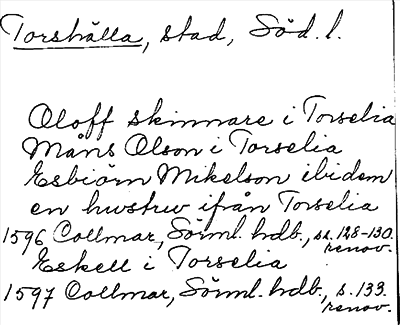 Torshälla, stad, Söd. l.
Oloff skinnare i Torselia
Måns Olson i Torselia
Esbiörn Mikelson ibidem
en hustru ifrån Torselia
1596 Collmar, Sörml. hdb., ss. 128-130.
renov.
Eskell i Torselia
1597 Collmar, Sörml. hdb., s. 133.
renov.